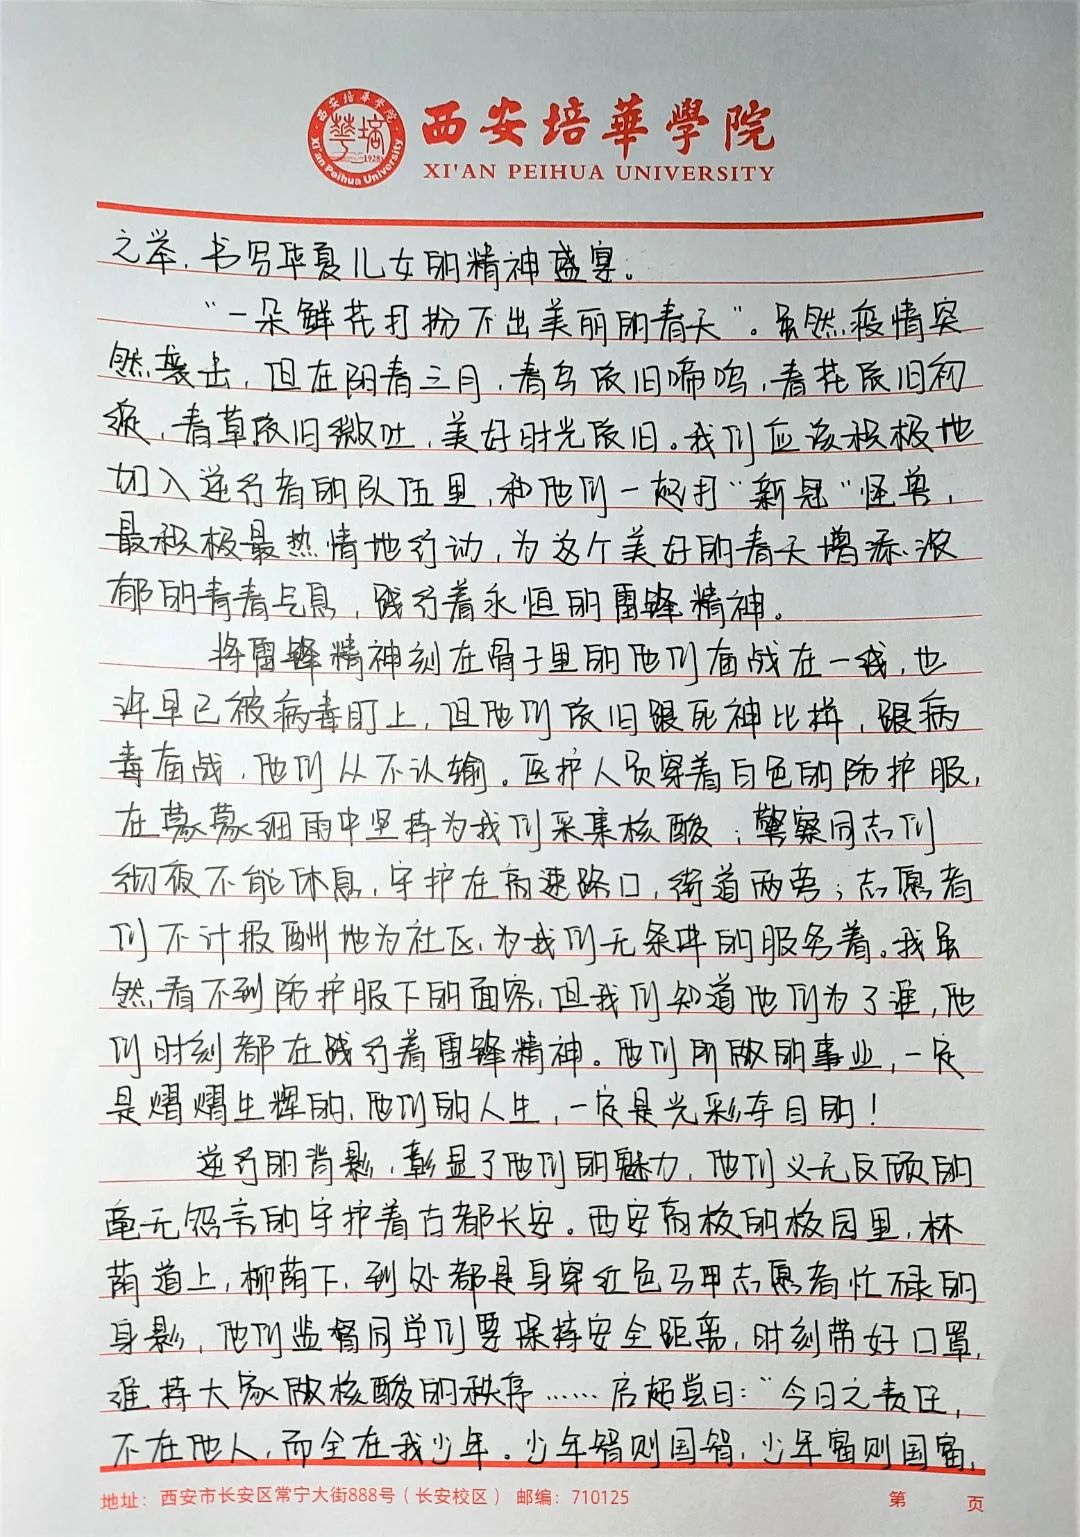 西安培華學院
XI'AN PEIHUA UNIVERSITY
西安培華學院
華培
1928
Xi'an Peihua University
之举，书写华夏儿女的精神盛宴。
“一朵鲜花打扮不出美丽的春天”。虽然疫情突
然袭击，但在阳春三月，春鸟依旧啼鸣，春花依旧初
绽，春草依旧微吐，美好时光依旧。我们应该积极地
切入逆行者的队伍里，和他们一起打“新冠”怪兽，
最积极最热情地行动，为这个美好的春天增添浓
郁的青春气息，践行着永恒的雷锋精神。
将雷锋精神刻在骨子里的他们奋战在一线，也
许早已被病毒盯上，但他们依旧跟死神比拼，跟病
毒奋战，他们从不认输。医护人员穿着白色的防护服，
在蒙蒙细雨中坚持为我们采集核酸；警察同志们
彻夜不能休息，守护在高速路口，街道两旁；志愿者
们不计报酬地为社区、为我们无条件的服务着。我虽
然看不到防护服下的面容，但我们知道他们为了谁，他
们时刻都在践行着雷锋精神。他们所做的事业，一定
是熠熠生辉的，他们的人生，一定是光彩夺目的！
逆行的背影，彰显了他们的魅力，他们义无反顾的
毫无怨言的守护着古都长安。西安高校的校园里，林
荫道上，柳荫下，到处都是身穿红色马甲志愿者忙碌的
身影，他们监督同学们要保持安全距离，时刻带好口罩，
维持大家做核酸的秩序……启超尝曰：“今日之责任，
不在他人，而全在我少年。少年智则国智，少年富则国富，
地址：西安市长安区常宁大街888号（长安校区） 邮编：710125 第 页